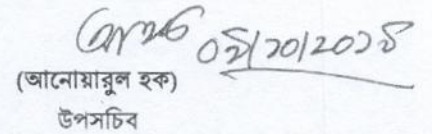 ০৯/১০/২০১৪
(আনোয়ারুল হক)
উপসচিব